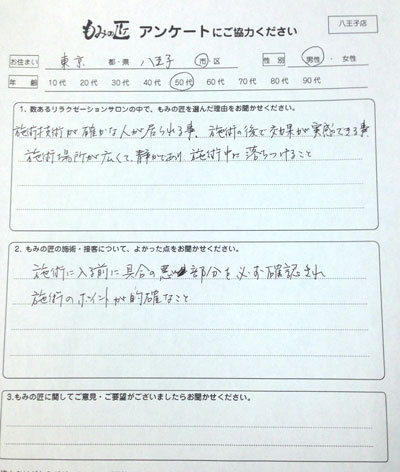 八王子店
もみの匠 アンケートにご協力ください
お住まい 東京 都・県 八王子 市・区 性別 男性・女性
年齢 10代 20代 30代 40代 50代 60代 70代 80代 90代
1. 数あるリラクゼーションサロンの中で、もみの匠を選んだ理由をお聞かせください。
施術技術が確かな人が居られる事、施術の後で効果が実感できる事
施術場所が広くて、静かであり、施術中に落ちつけること
2. もみの匠の施術・接客について、よかった点をお聞かせください。
施術に入る前に具合の悪い部分を必ず確認され
施術のポイントが的確なこと
3.もみの匠に関してご意見・ご要望がございましたらお聞かせください。